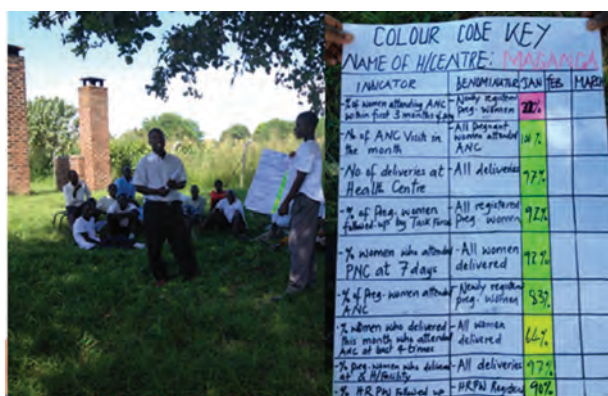 COLOUR CODE KEY
NAME OF H/CENTRE: MAGANGA
INDICATOR DENOMINATOR JAN FEB MARCH
-% of women attending ANC within first 3 months of -Newly registered preg. women
-No of ANC Visits in the month -All pregnant women attended ANC 101%
-No. of deliveries at Health Centre -All deliveries 97%
-% of Preg. women followed-up by Task Force -All registered preg. women 92%
-% women who attended PNC at 7 days -All women delivered 92%
-% of Preg. women attended ANC -Newly registered preg. women 83%
-% women who delivered this month who attended ANC at least 4 times -All women delivered 64%
-% Preg women who deliver at a H/Facility -All deliveries 97%
-% HRPW Followed up -HRPW Registered 90%